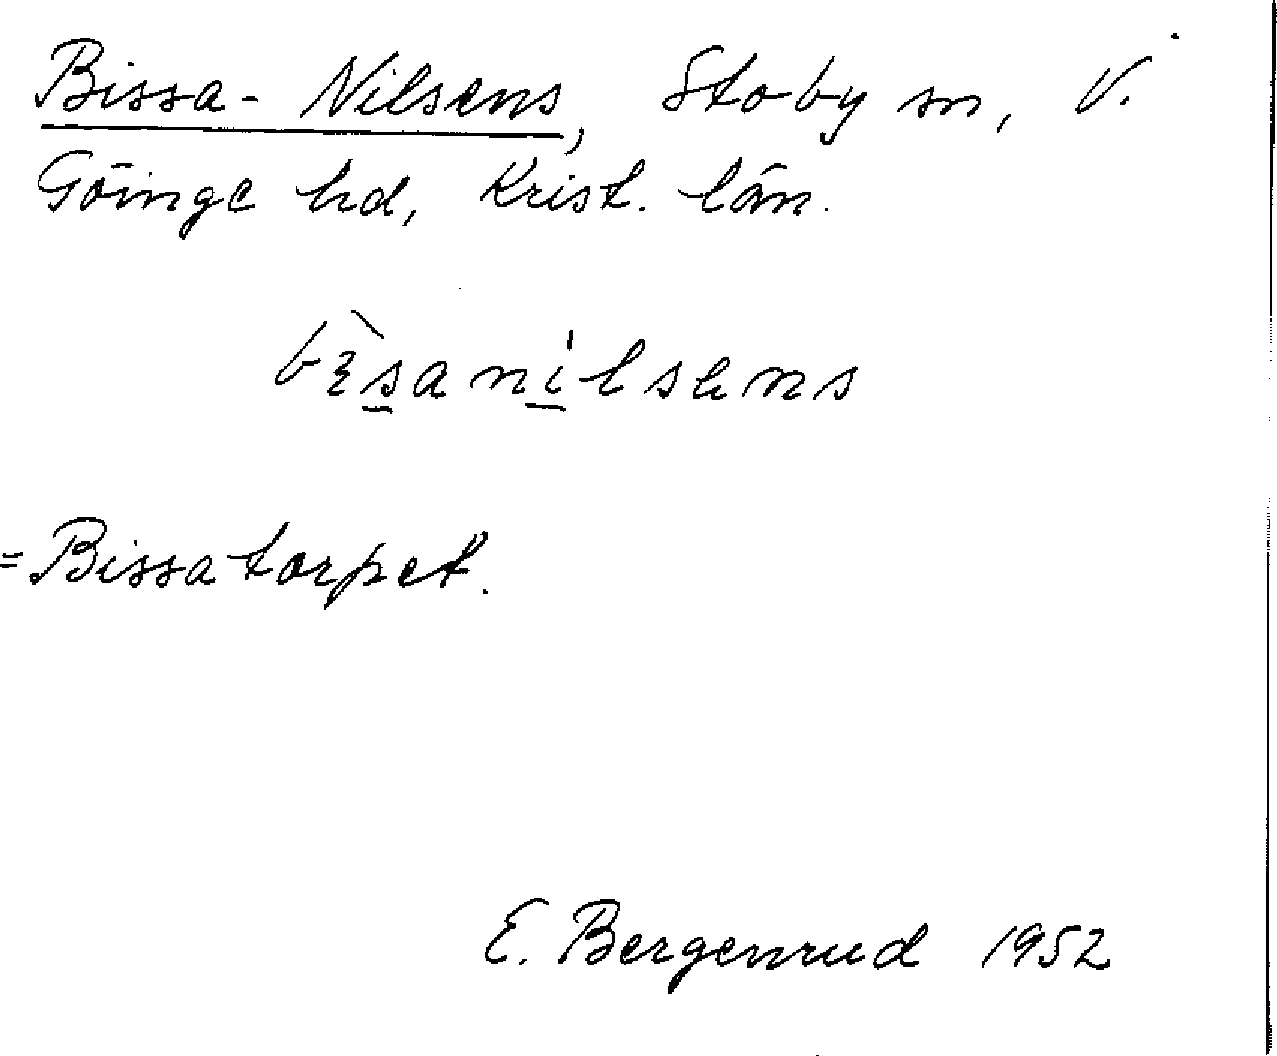 Bissa-Nilsens, Stoby sn, V.
Göinge hd, Krist. län.
= Bissatorpet.
E. Bergenrud 1952